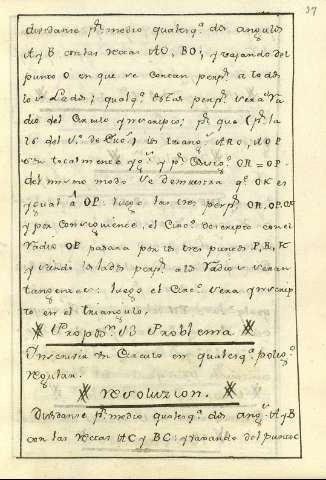 37
dividanse pr. medio qualesqa. dos angulos
A y B con las rectas AO, BO; y vajando del
punto O en que se cortan perps. a todos
los Lados; qualqa. de estas perps. sera Ra
dio del Circulo ynscripto; pr. que (pr. la
26 del 1.o de Eucs.) los triangs. ARO, AOP
son totalmente ygs. y pr. Consigte. OR = OP.
del mismo modo se demuestra qe. OK es
ygual á OP: luego las tres perps. OR, OP, OK
y por Consiguiente, el Circo. descripto con el
Radio OP pasara por los tres puntos P, R, K
y siendo los lados perps. a los Radios seran
tangentes: luego el Circo. sera ynscrip
to en el triangulo.
Propon. 13 Problema
Inscribir un Circulo en qualesqa. poligo.
regular.
resoluzion.
Dividanse pr. medio qualesqa. dos angs. A y B
con las rectas AC y BC: y vajando del punto C